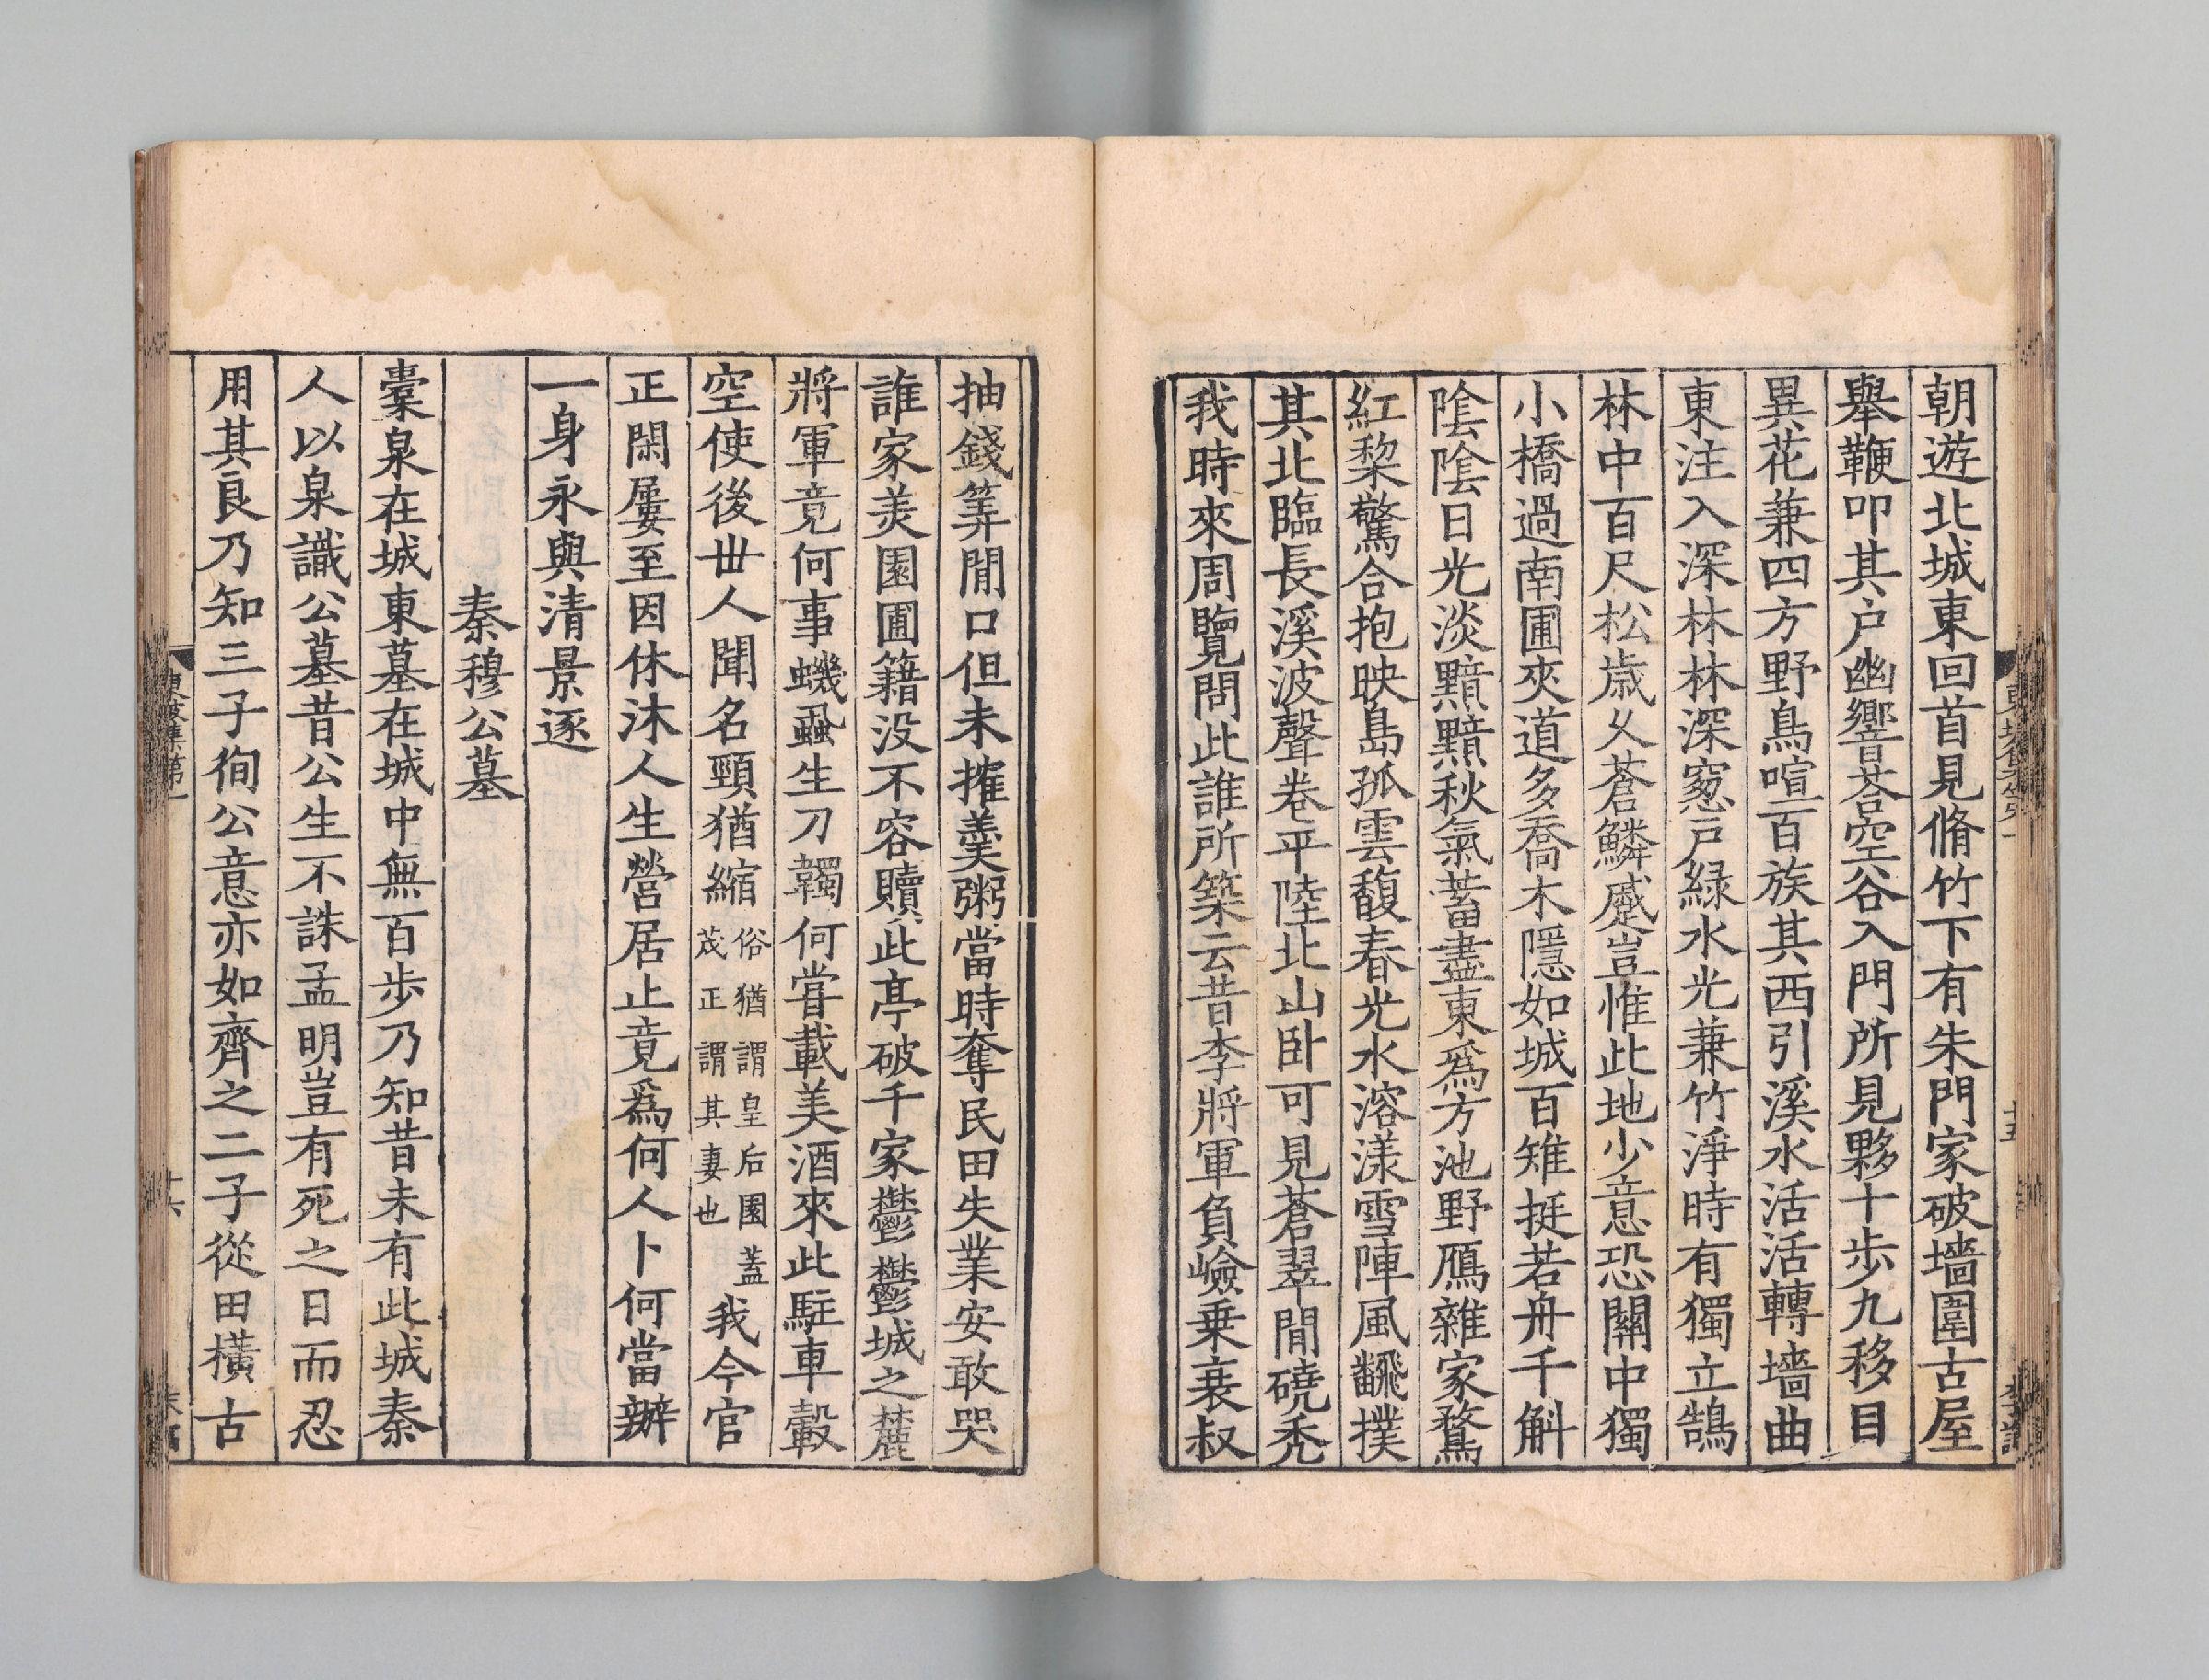 朝遊北城東回首見脩竹下有朱門家破墻圍古屋
舉鞭叩其户幽響荅空谷入門所見夥十步九移目
異花兼四方野鳥喧百族其西引溪水活活轉墻曲
東注入深林林深窓戸緑水光兼竹淨時有獨立鵠
林中百尺松歳乆蒼鱗蹙豈惟此地少意恐關中獨
小橋過南圃夾道多喬木隱如城百雉挺若舟千斛
陰陰日光淡黯黯秋氣蓄盡東爲方池野鴈雜家鶩
紅棃驚合抱映島孤雲馥春光水溶漾雪陣風飜撲
其北臨長溪波聲卷平陸北山卧可見蒼翠閒磽秃
我時來周覽問此誰所築云昔李將軍負嶮乗衰叔
抽錢筭閒口但未搉羹粥當時奪民田失業安敢哭
誰家美園圃籍没不容贖此亭破千家鬱鬱城之麓
將軍竟何事蟣蝨生刀韣何甞載美酒來此駐車轂
空使後丗人聞名頸猶縮俗猶謂皇后園蓋茂正謂其妻也我今官
正閑屢至因休沐人生營居止竟爲何人卜何當辦
一身永與清景逐
秦穆公墓
橐泉在城東墓在城中無百步乃知昔未有此城秦
人以泉識公墓昔公生不誅孟明豈有死之日而忍
用其良乃知三子徇公意亦如齊之二子從田橫古
東坡集第一
十六